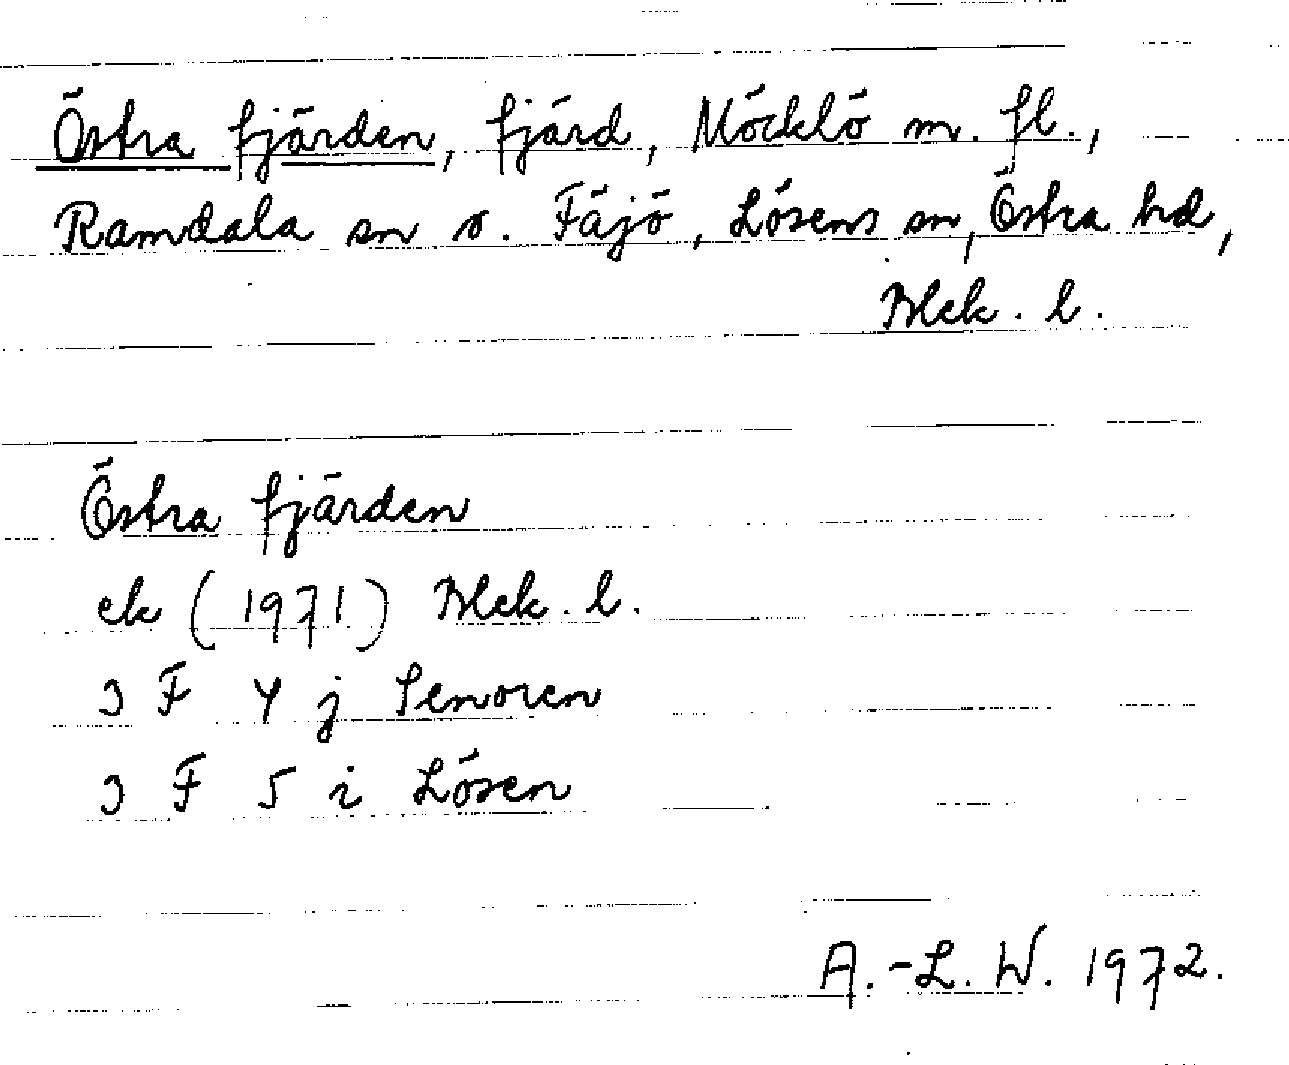 Östra fjärden, fjärd, Möcklö m. fl.,
Ramdala sn o. Fäjö, Lösens sn, Östra hd,
Blek. l.
Östra fjärden
ek (1971) Blek. l.
3 F 4 j Senoren
3 F 5 i Lösen
A.-L. W. 1972.